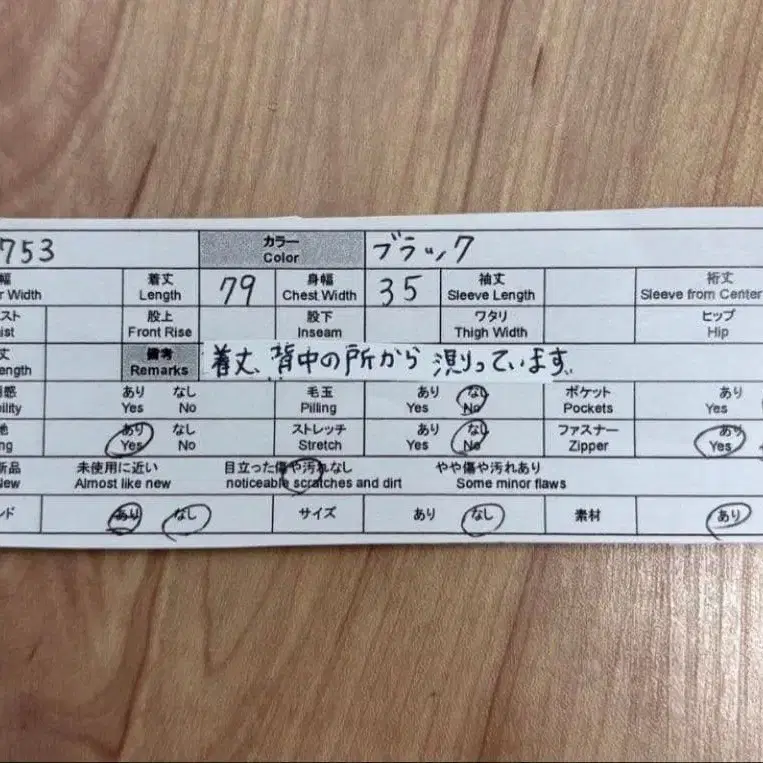 753 カラー Color ブラック
幅 着丈 79 身幅 35 袖丈 裄丈
r Width Length Chest Width Sleeve Length Sleeve from Center
スト 股上 股下 ワタリ ヒップ
ist Front Rise Inseam Thigh Width Hip
丈 備考 着丈、背中の所から測っています。
ength Remarks
感 あり なし 毛玉 あり なし ポケット あり
ility Yes No Pilling Yes No Pockets Yes
地 あり なし ストレッチ あり なし ファスナー あり
ng Yes No Stretch Yes No Zipper Yes
新品 未使用に近い 目立った傷や汚れなし やや傷や汚れあり
New Almost like new noticeable scratches and dirt Some minor flaws
ンド あり なし サイズ あり なし 素材 あり